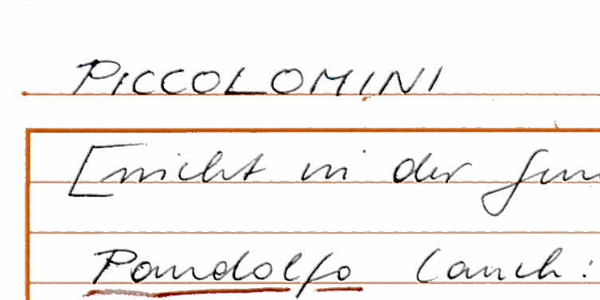 PICCOLOMINI
[nicht in der
Pandolfo (auch: